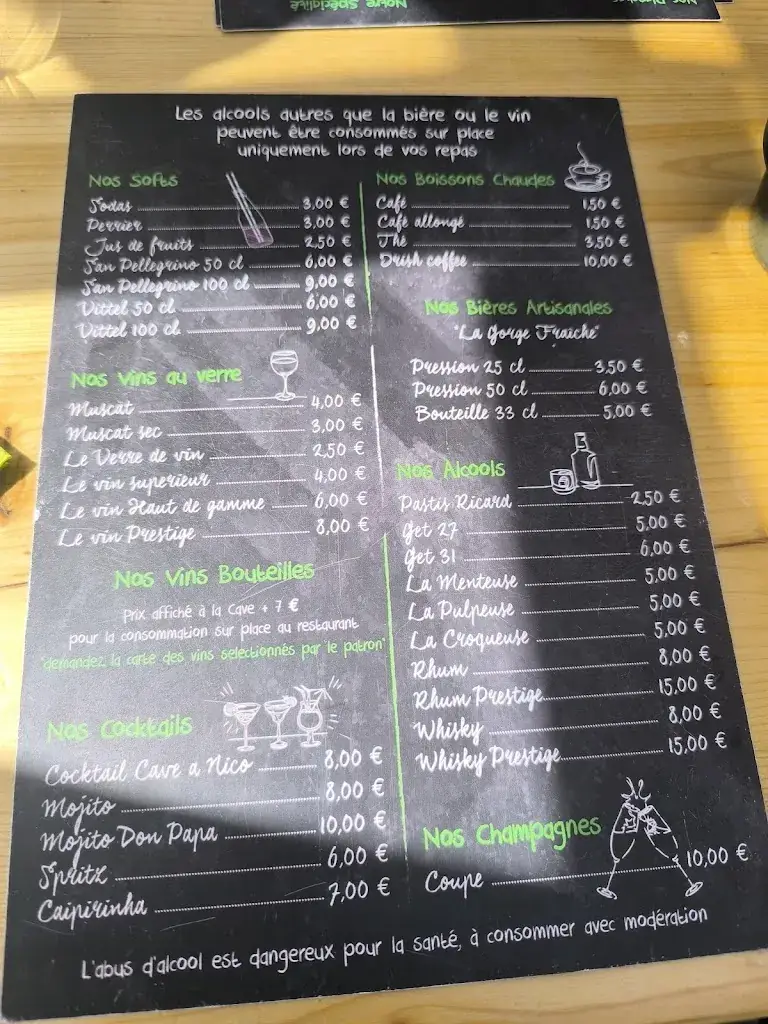 Notre Spécialité
Les alcools autres que la bière ou le vin
peuvent être consommés sur place
uniquement lors de vos repas
Nos Softs
Sodas 3,00 €
Perrier 3,00 €
Jus de fruits 2,50 €
San Pellegrino 50 cl 6,00 €
San Pellegrino 100 cl 9,00 €
Vittel 50 cl 6,00 €
Vittel 100 cl 9,00 €
Nos vins au verre
Muscat 4,00 €
Muscat sec 3,00 €
Le Verre de vin 2,50 €
Le vin superieur 4,00 €
Le vin Haut de gamme 6,00 €
Le vin Prestige 8,00 €
Nos Vins Bouteilles
Prix affiché à la Cave + 7 €
pour la consommation sur place au restaurant
"demandez la carte des vins selectionnés par le patron"
Nos Cocktails
Cocktail Cave a Nico 8,00 €
Mojito 8,00 €
Mojito Don Papa 10,00 €
Spritz 6,00 €
Caipirinha 7,00 €
Nos Boissons Chaudes
Café 1,50 €
Café allongé 1,50 €
Thé 3,50 €
Irish coffee 10,00 €
Nos Bières Artisanales
"La Gorge Fraiche"
Pression 25 cl 3,50 €
Pression 50 cl 6,00 €
Bouteille 33 cl 5,00 €
Nos Alcools
Pastis Ricard 2,50 €
Get 27 5,00 €
Get 31 6,00 €
La Menteuse 5,00 €
La Pulpeuse 5,00 €
La Croqueuse 5,00 €
Rhum 8,00 €
Rhum Prestige 15,00 €
Whisky 8,00 €
Whisky Prestige 15,00 €
Nos Champagnes
Coupe 10,00 €
L'abus d'alcool est dangereux pour la santé, à consommer avec modération